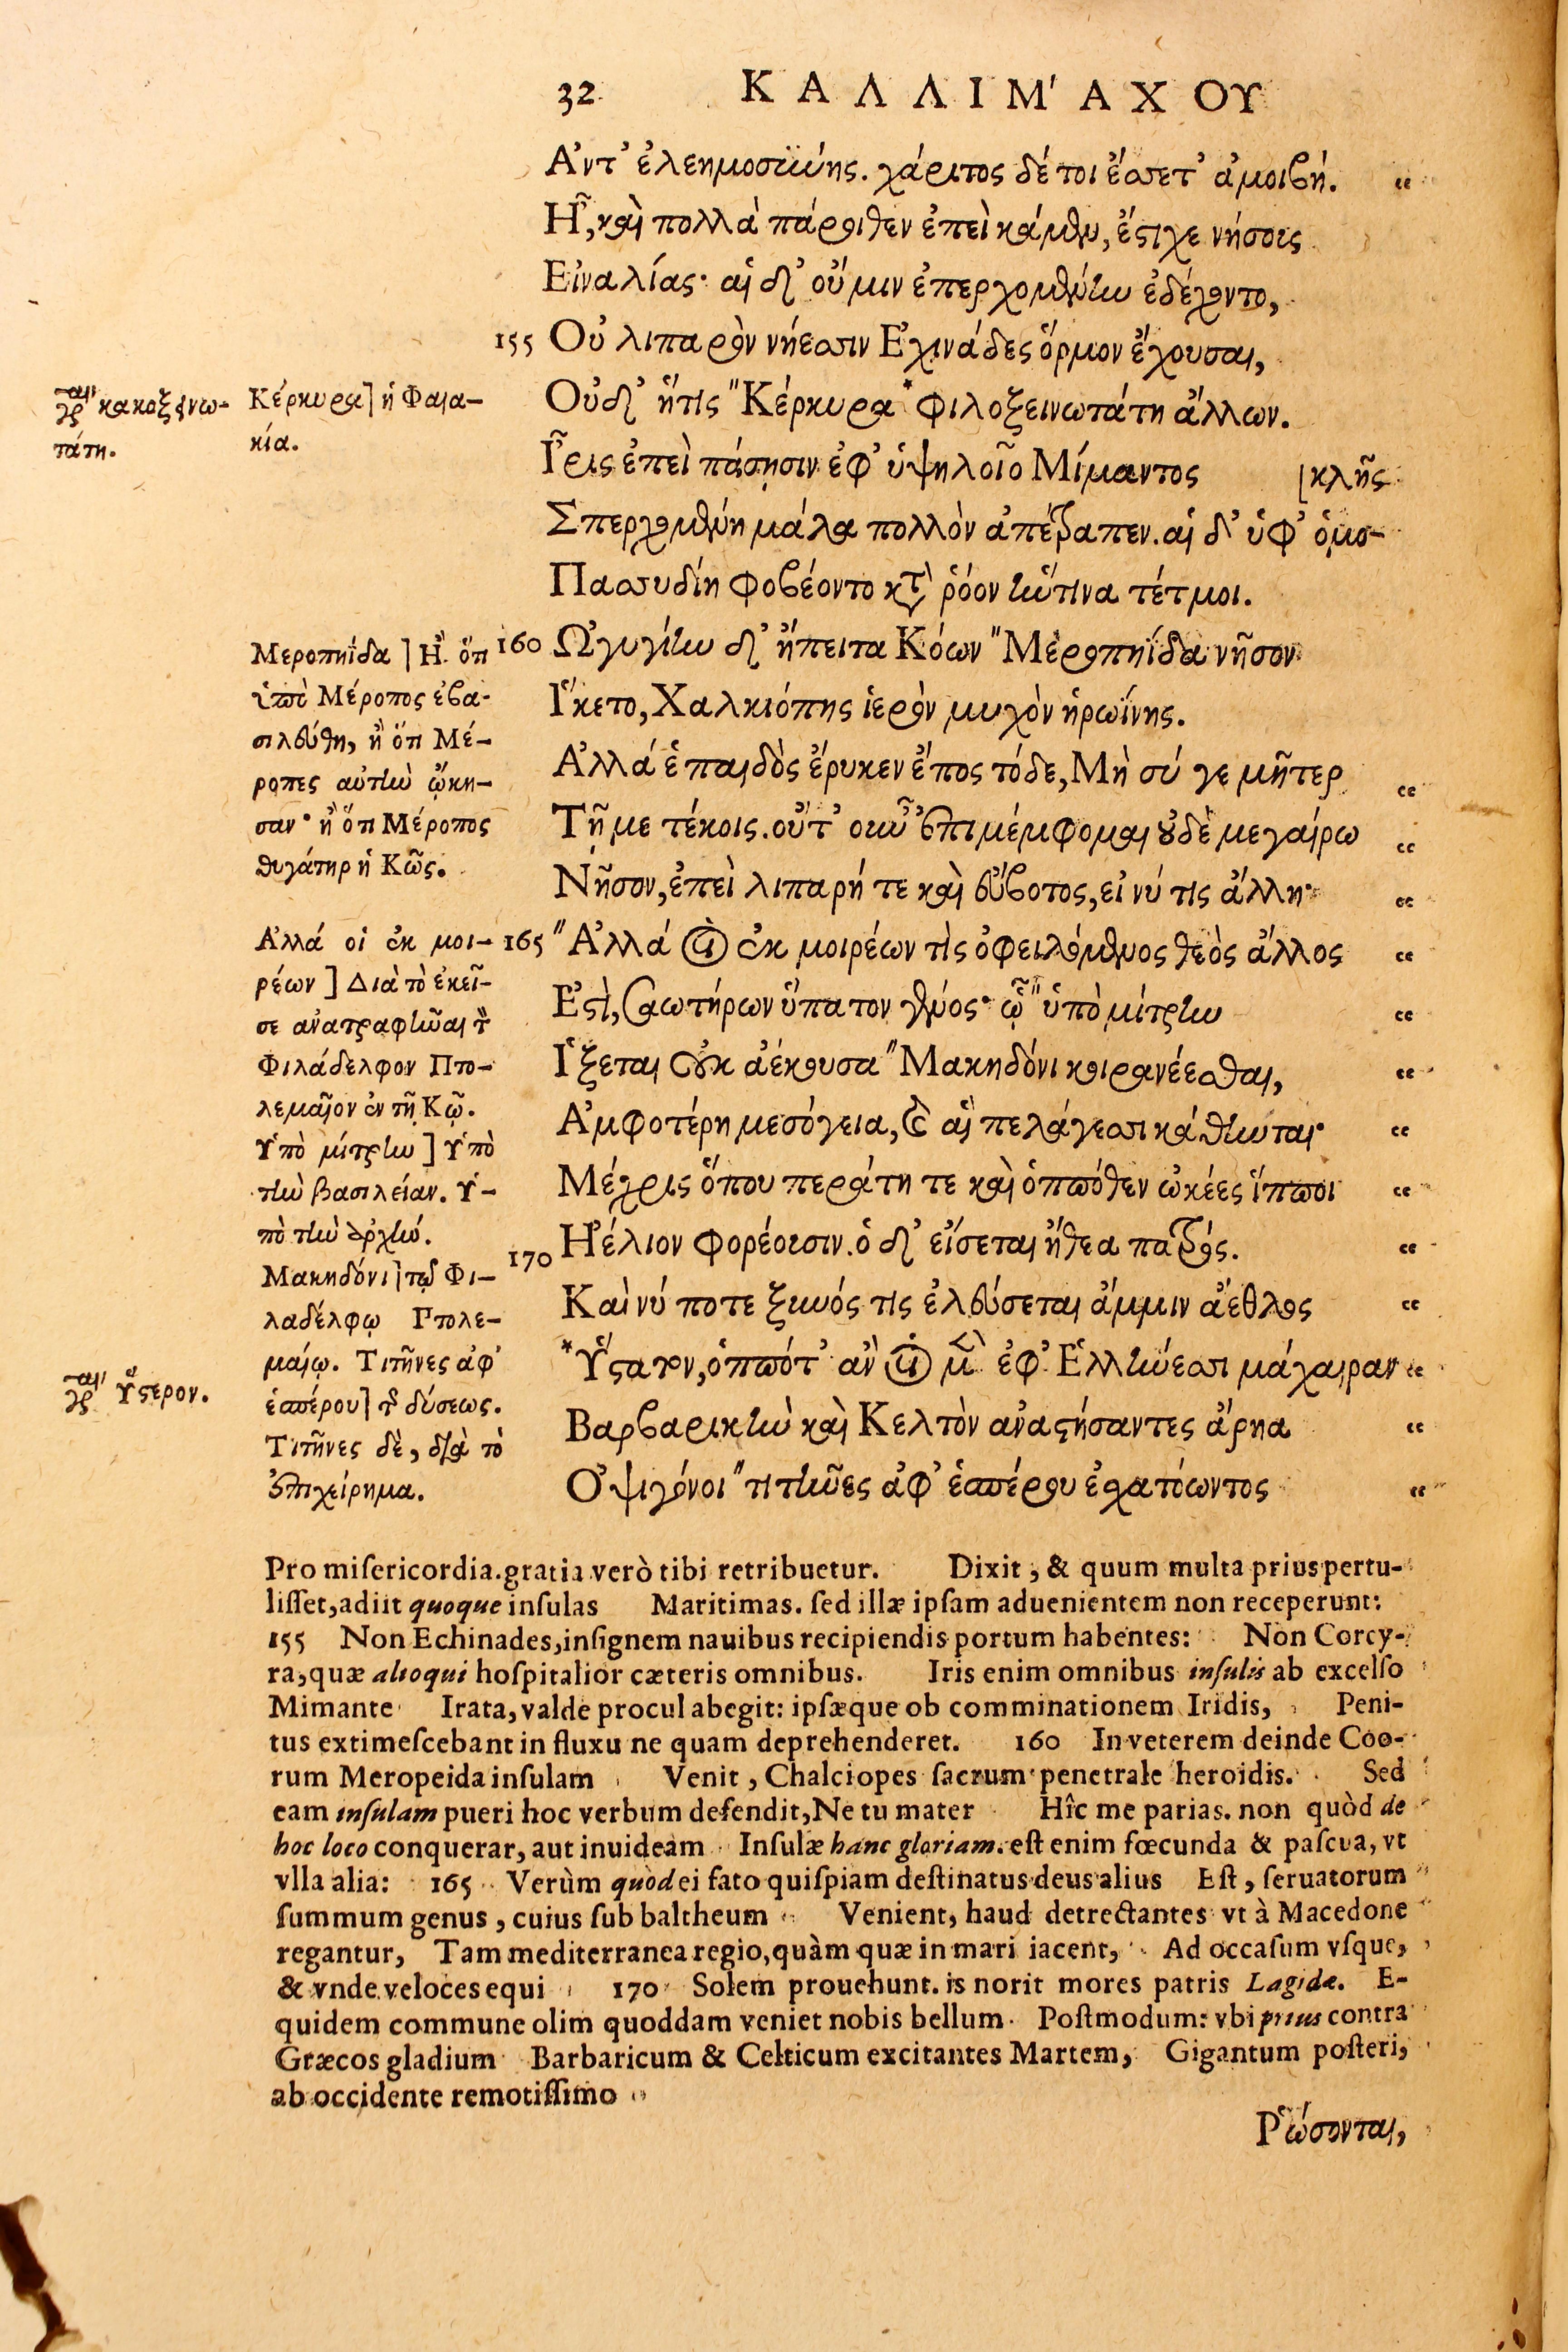 32 ΚΑΛΛΙΜΆΧΟΥ
Ἀντ' ἐλεημοσύνης. χάριτος δέ τοι ἔσσετ' ἀμοιβή. “
Ἦ, καὶ πολλὰ πάροιθεν ἐπεὶ κάμεν, ἔστιχε νήσοις
Εἰναλίας· αἱ δ' οὔ μιν ἐπερχομένην ἐδέχοντο,
155 Οὐ λιπαρὸν νήεσσιν Ἐχινάδες ὅρμον ἔχουσαι,
Οὐδ' ἥτις "Κέρκυρα * φιλοξεινωτάτη ἄλλων.
Ἶρις ἐπεὶ πάσῃσιν ἐφ' ὑψηλοῖο Μίμαντος [κλῆς
Σπερχομένη μάλα πολλὸν ἀπέτραπεν. αἱ δ' ὑφ' ὁμο-
Πασσυδίη φοβέοντο κατὰ ῥόον ἥντινα τέτμοι.
160 Ὠγυγίην δ' ἤπειτα Κόων "Μεροπηΐδα νῆσον
Ἵκετο, Χαλκιόπης ἱερὸν μυχὸν ἡρωΐνης.
Ἀλλά ἑ παιδὸς ἔρυκεν ἔπος τόδε, Μὴ σύ γε μῆτερ “
Τῇ με τέκοις. οὔτ' οὖν ἐπιμέμφομαι οὐδὲ μεγαίρω “
Νῆσον, ἐπεὶ λιπαρή τε καὶ εὔβοτος, εἰ νύ τις ἄλλη· “
165 "Ἀλλά οἱ ἐκ μοιρέων τὶς ὀφειλόμενος θεὸς ἄλλος “
Ἐστὶ, σαωτήρων ὕπατον γένος· ᾧ "ὑπὸ μίτρην “
Ἵξεται οὐκ ἀέκουσα "Μακηδόνι κοιρανέεσθαι, “
Ἀμφοτέρη μεσόγεια, καὶ αἳ πελάγεσσι κάθηνται· “
Μέχρις ὅπου περάτη τε καὶ ὁππόθεν ὠκέες ἵπποι “
170 Ἠέλιον φορέουσιν. ὁ δ' εἴσεται ἤθεα πατρός. “
Καὶ νύ ποτε ξυνός τις ἐλεύσεται ἄμμιν ἄεθλος “
* Ὕστατον, ὁππότ' ἂν οἱ μὲν ἐφ' Ἑλλήνεσσι μάχαιραν “
Βαρβαρικὴν καὶ Κελτὸν ἀναστήσαντες ἄρηα “
Ὀψιγόνοι "τιτῆνες ἀφ' ἑσπέρου ἐσχατόωντος “
γρ. καὶ κακοξεινω-
τάτη.
Κέρκυρα] ἡ Φαια-
κία.
Μεροπηΐδα] Ἢ ὅτι
ὑπὸ Μέροπος ἐβα-
σιλεύθη, ἢ ὅτι Μέ-
ροπες αὐτὴν ᾤκη-
σαν· ἢ ὅτι Μέροπος
θυγάτηρ ἡ Κῶς.
Ἀλλά οἱ ἐκ μοι-
ρέων] Διὰ τὸ ἐκεῖ-
σε ἀνατραφῆναι τὸν
Φιλάδελφον Πτο-
λεμαῖον ἐν τῇ Κῷ.
Ὑπὸ μίτρην] Ὑπὸ
τὴν βασιλείαν. Ὑ-
πὸ τὴν ἀρχήν.
Μακηδόνι] τῷ Φι-
λαδέλφῳ Πτολε-
μαίῳ. Τιτῆνες ἀφ'
ἑσπέρου] τῆς δύσεως.
Τιτῆνες δὲ, διὰ τὸ
ἐπιχείρημα.
γρ. καὶ ὕστερον.
Pro miſericordia. gratia verò tibi retribuetur. Dixit, & quum multa prius pertu-
liſſet, adiit quoque inſulas Maritimas. ſed illæ ipſam aduenientem non receperunt:
155 Non Echinades, inſignem nauibus recipiendis portum habentes: Non Corcy-
ra, quæ alioqui hoſpitalior cæteris omnibus. Iris enim omnibus inſulis ab excelſo
Mimante Irata, valde procul abegit: ipſæque ob comminationem Iridis, Peni-
tus extimeſcebant in fluxu ne quam deprehenderet. 160 In veterem deinde Coo-
rum Meropeida inſulam Venit, Chalciopes ſacrum penetrale heroidis. Sed
eam inſulam pueri hoc verbum defendit, Ne tu mater Hîc me parias. non quòd de
hoc loco conquerar, aut inuideam Inſulæ hanc gloriam. eſt enim fœcunda & paſcua, vt
vlla alia: 165 Verùm quòd ei fato quiſpiam deſtinatus deus alius Eſt, ſeruatorum
ſummum genus, cuius ſub baltheum Venient, haud detrectantes vt à Macedone
regantur, Tam mediterranea regio, quàm quæ in mari iacent, Ad occaſum vſque,
& vnde veloces equi 170 Solem prouehunt. is norit mores patris Lagidæ. E-
quidem commune olim quoddam veniet nobis bellum Poſtmodum: vbi prius contra
Græcos gladium Barbaricum & Celticum excitantes Martem, Gigantum poſteri,
ab occidente remotiſſimo
Ῥώσονται,